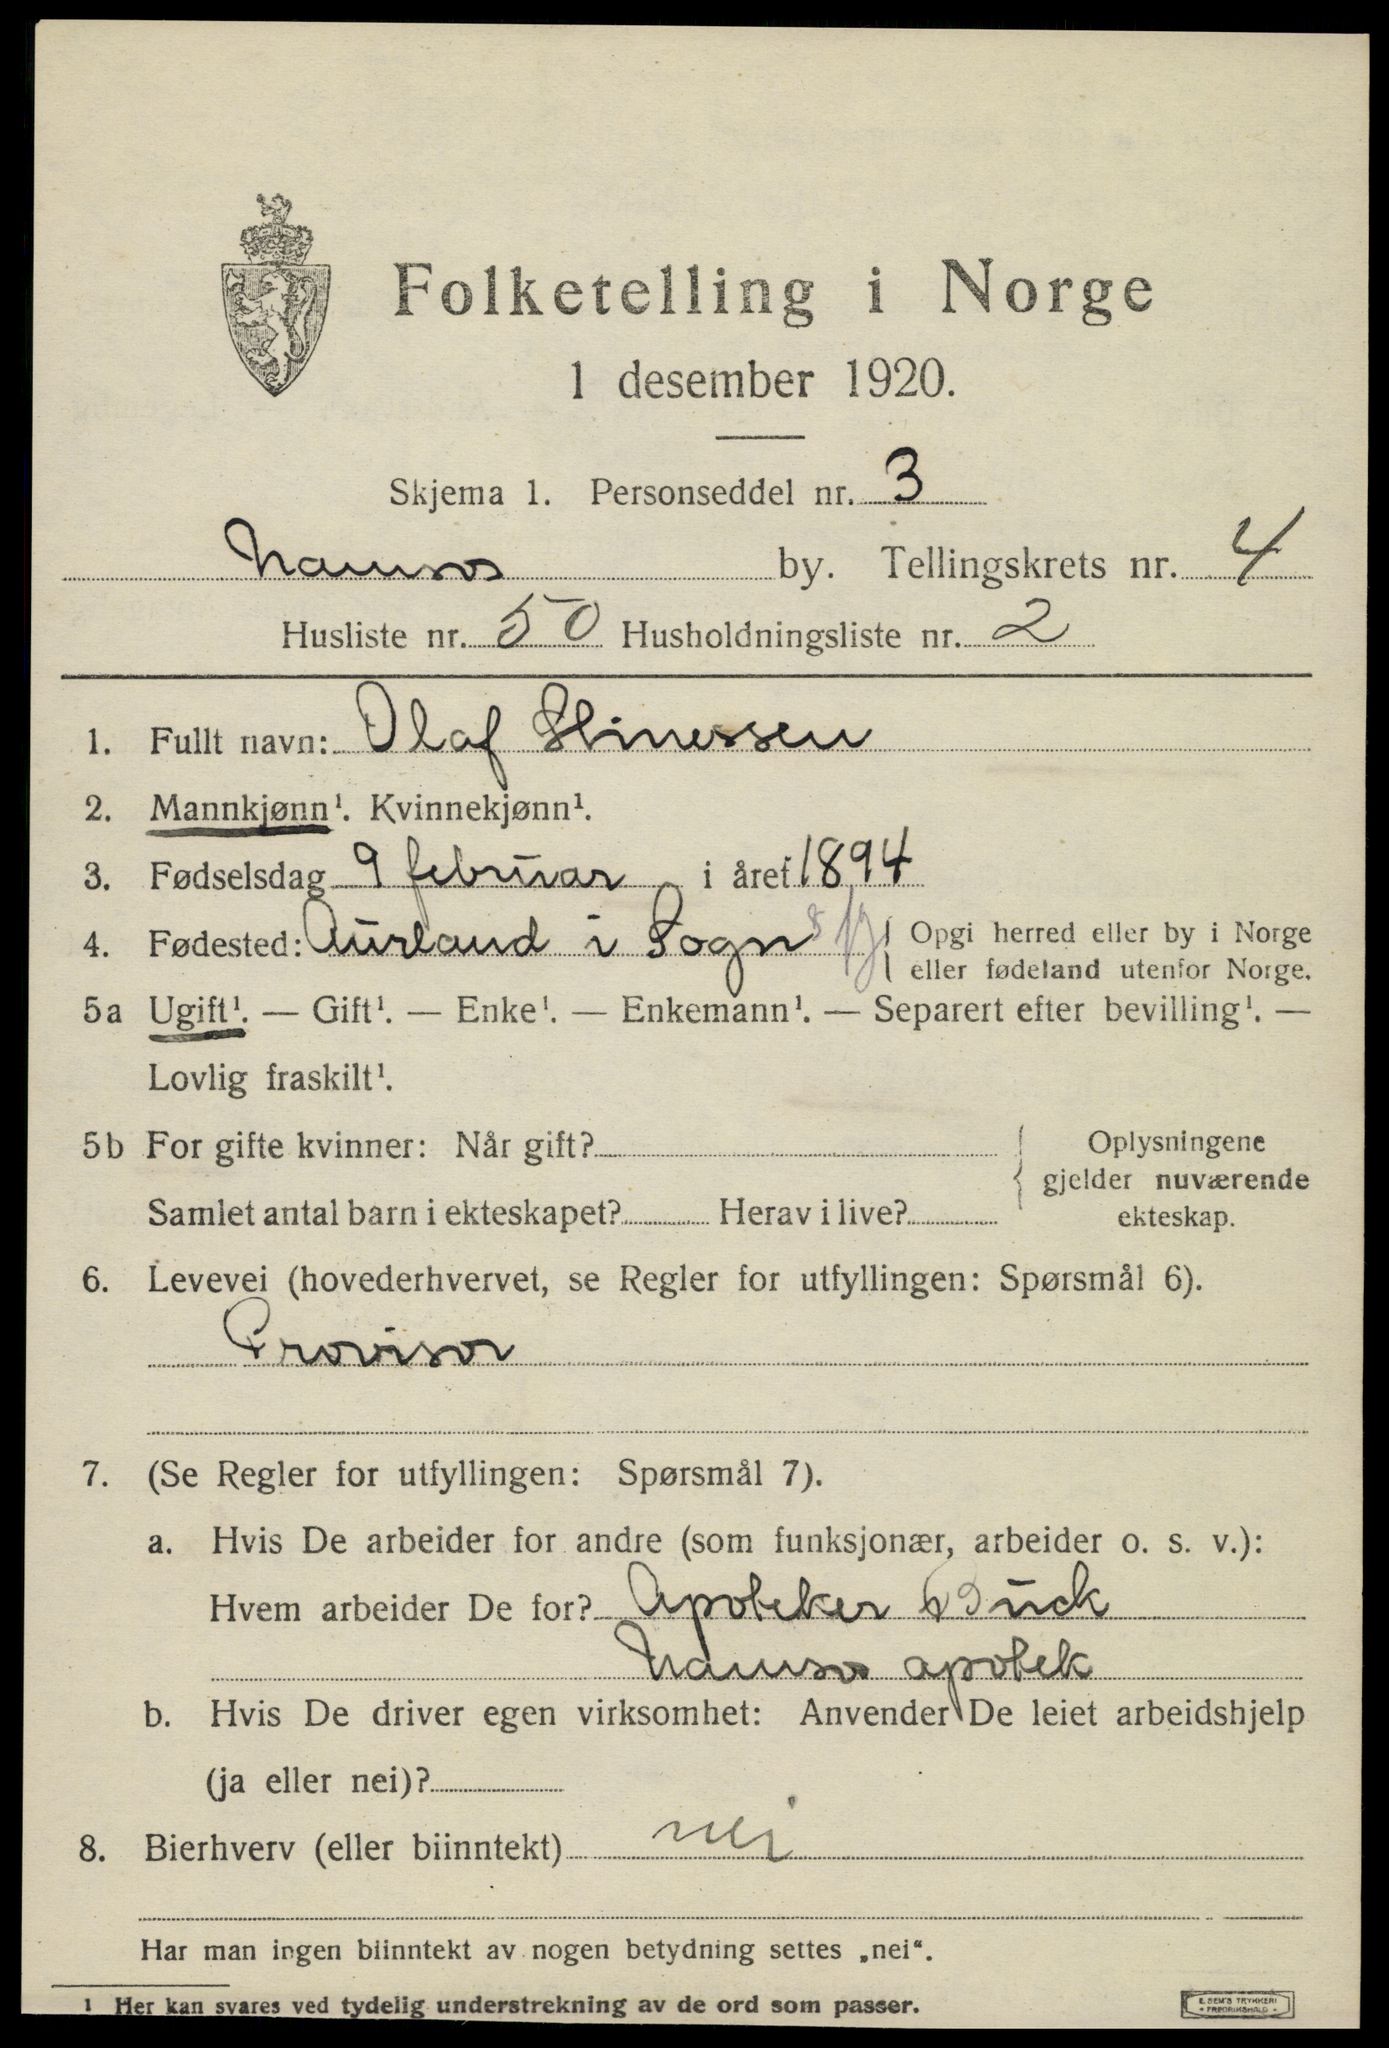 Folketelling i Norge
1 desember 1920.
Skjema 1. Personseddel nr. 3
Namsos by. Tellingskrets nr. 4
Husliste nr. 50 Husholdningsliste nr. 2
1. Fullt navn: Olaf
2. Mannkjønn¹. Kvinnekjønn¹.
3. Fødselsdag 9 februar i året 1894
4. Fødested: Aurland i Sogn { Opgi herred eller by i Norge
eller fødeland utenfor Norge.
5a Ugift¹. — Gift¹. — Enke¹. — Enkemann¹. — Separert efter bevilling¹. —
Lovlig fraskilt¹.
5b For gifte kvinner: Når gift? { Oplysningene
gjelder nuværende
Samlet antal barn i ekteskapet? Herav i live? ekteskap.
6. Levevei (hovederhvervet, se Regler for utfyllingen: Spørsmål 6).
Provisor
7. (Se Regler for utfyllingen: Spørsmål 7).
a. Hvis De arbeider for andre (som funksjonær, arbeider o. s. v.):
Hvem arbeider De for? Apoteker Buck
Namsos apotek
b. Hvis De driver egen virksomhet: Anvender De leiet arbeidshjelp
(ja eller nei)?
8. Bierhverv (eller biinntekt) nei
Har man ingen biinntekt av nogen betydning settes „nei“.
¹ Her kan svares ved tydelig understrekning av de ord som passer.
E. SEM'S TRYKKERI
• FREDRIKSHALD •